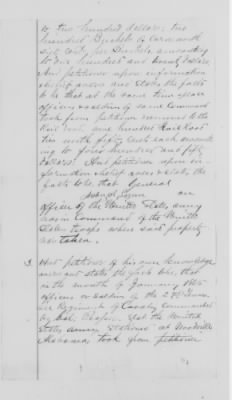 to two hundred dollars; two
hundred Bushels of Corn worth
sixty cents per Bushel, amounting
to one hundred and twenty dollars
And petitioner upon information
& belief avers and states the facts
to be that at the same time & place
officers & soldiers of same command
took from petitioner
Rail road, one hundred Rail Road
ties worth fifty cents each amount-
ing to fifty
dollars. And petitioner upon in-
formation & belief avers & states the
facts to be, that General
an
officer of the United States army
was in Command of the United
States troops where said property
was taken.
3. And petitioner of his own knowledge
avers and states the facts to be, that
in the month of January 1865
officers & soldiers of the 2nd
Regiment of Cavalry Commanded
by Col. of the United
States army stationed at Woodville
Alabama, took from petitioner